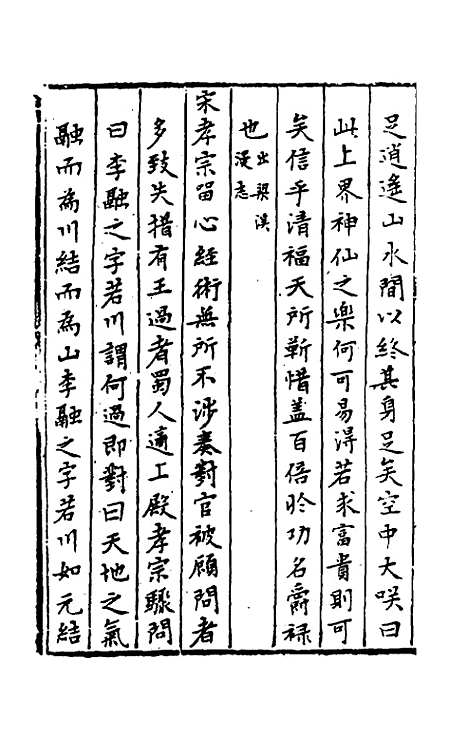 足逍遙山水間以終其身足矣空中大咲曰
此上界神仙之樂何可易得若求富貴則可
矣信乎清福天所靳惜蓋百倍於功名爵祿
也出梁溪漫志
宋孝宗留心經術無所不涉奏對官被顧問者
多致失措有王過者蜀人適上殿孝宗驟問
曰李融之字若川謂何過即對曰天地之氣
融而為川結而為山李融之字若川如元結